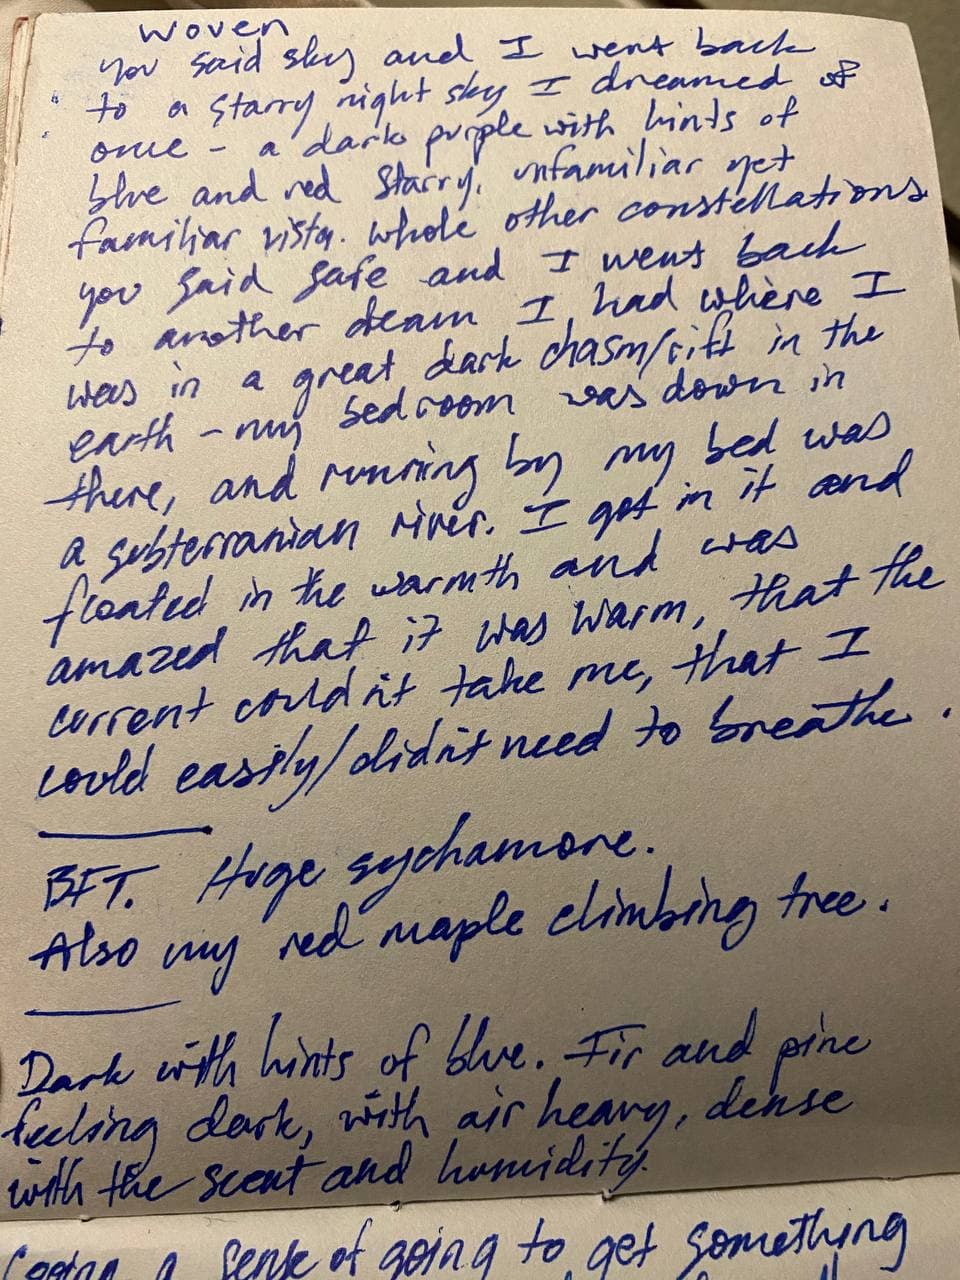 woven
you said sky and I went back
to a starry night sky I dreamed of
once - a dark purple with hints of
blue and red starry, unfamiliar yet
familiar vista. whole other constellations
you said safe and I went back
to another dream I had where I
was in a great dark chasm/rift in the
earth - my bedroom was down in
there, and running by my bed was
a subterranian river. I got in it and
floated in the warmth and was
amazed that it was warm, that the
current couldn't take me, that I
could easily/didn't need to breathe.
BFT. Huge sychamore.
Also my red maple climbing tree.
Dark with hints of blue. Fir and pine
feeling dark, with air heavy, dense
with the scent and humidity.
a sense of going to get something